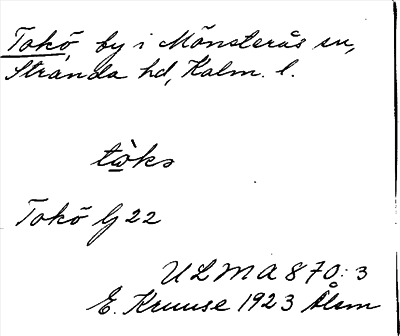 Tokö, by i Mönsterås sn,
Stranda hd, Kalm. l.
tὼks
Tokö G 22
ULMA 870:3
E. Kruuse 1923 Ålem